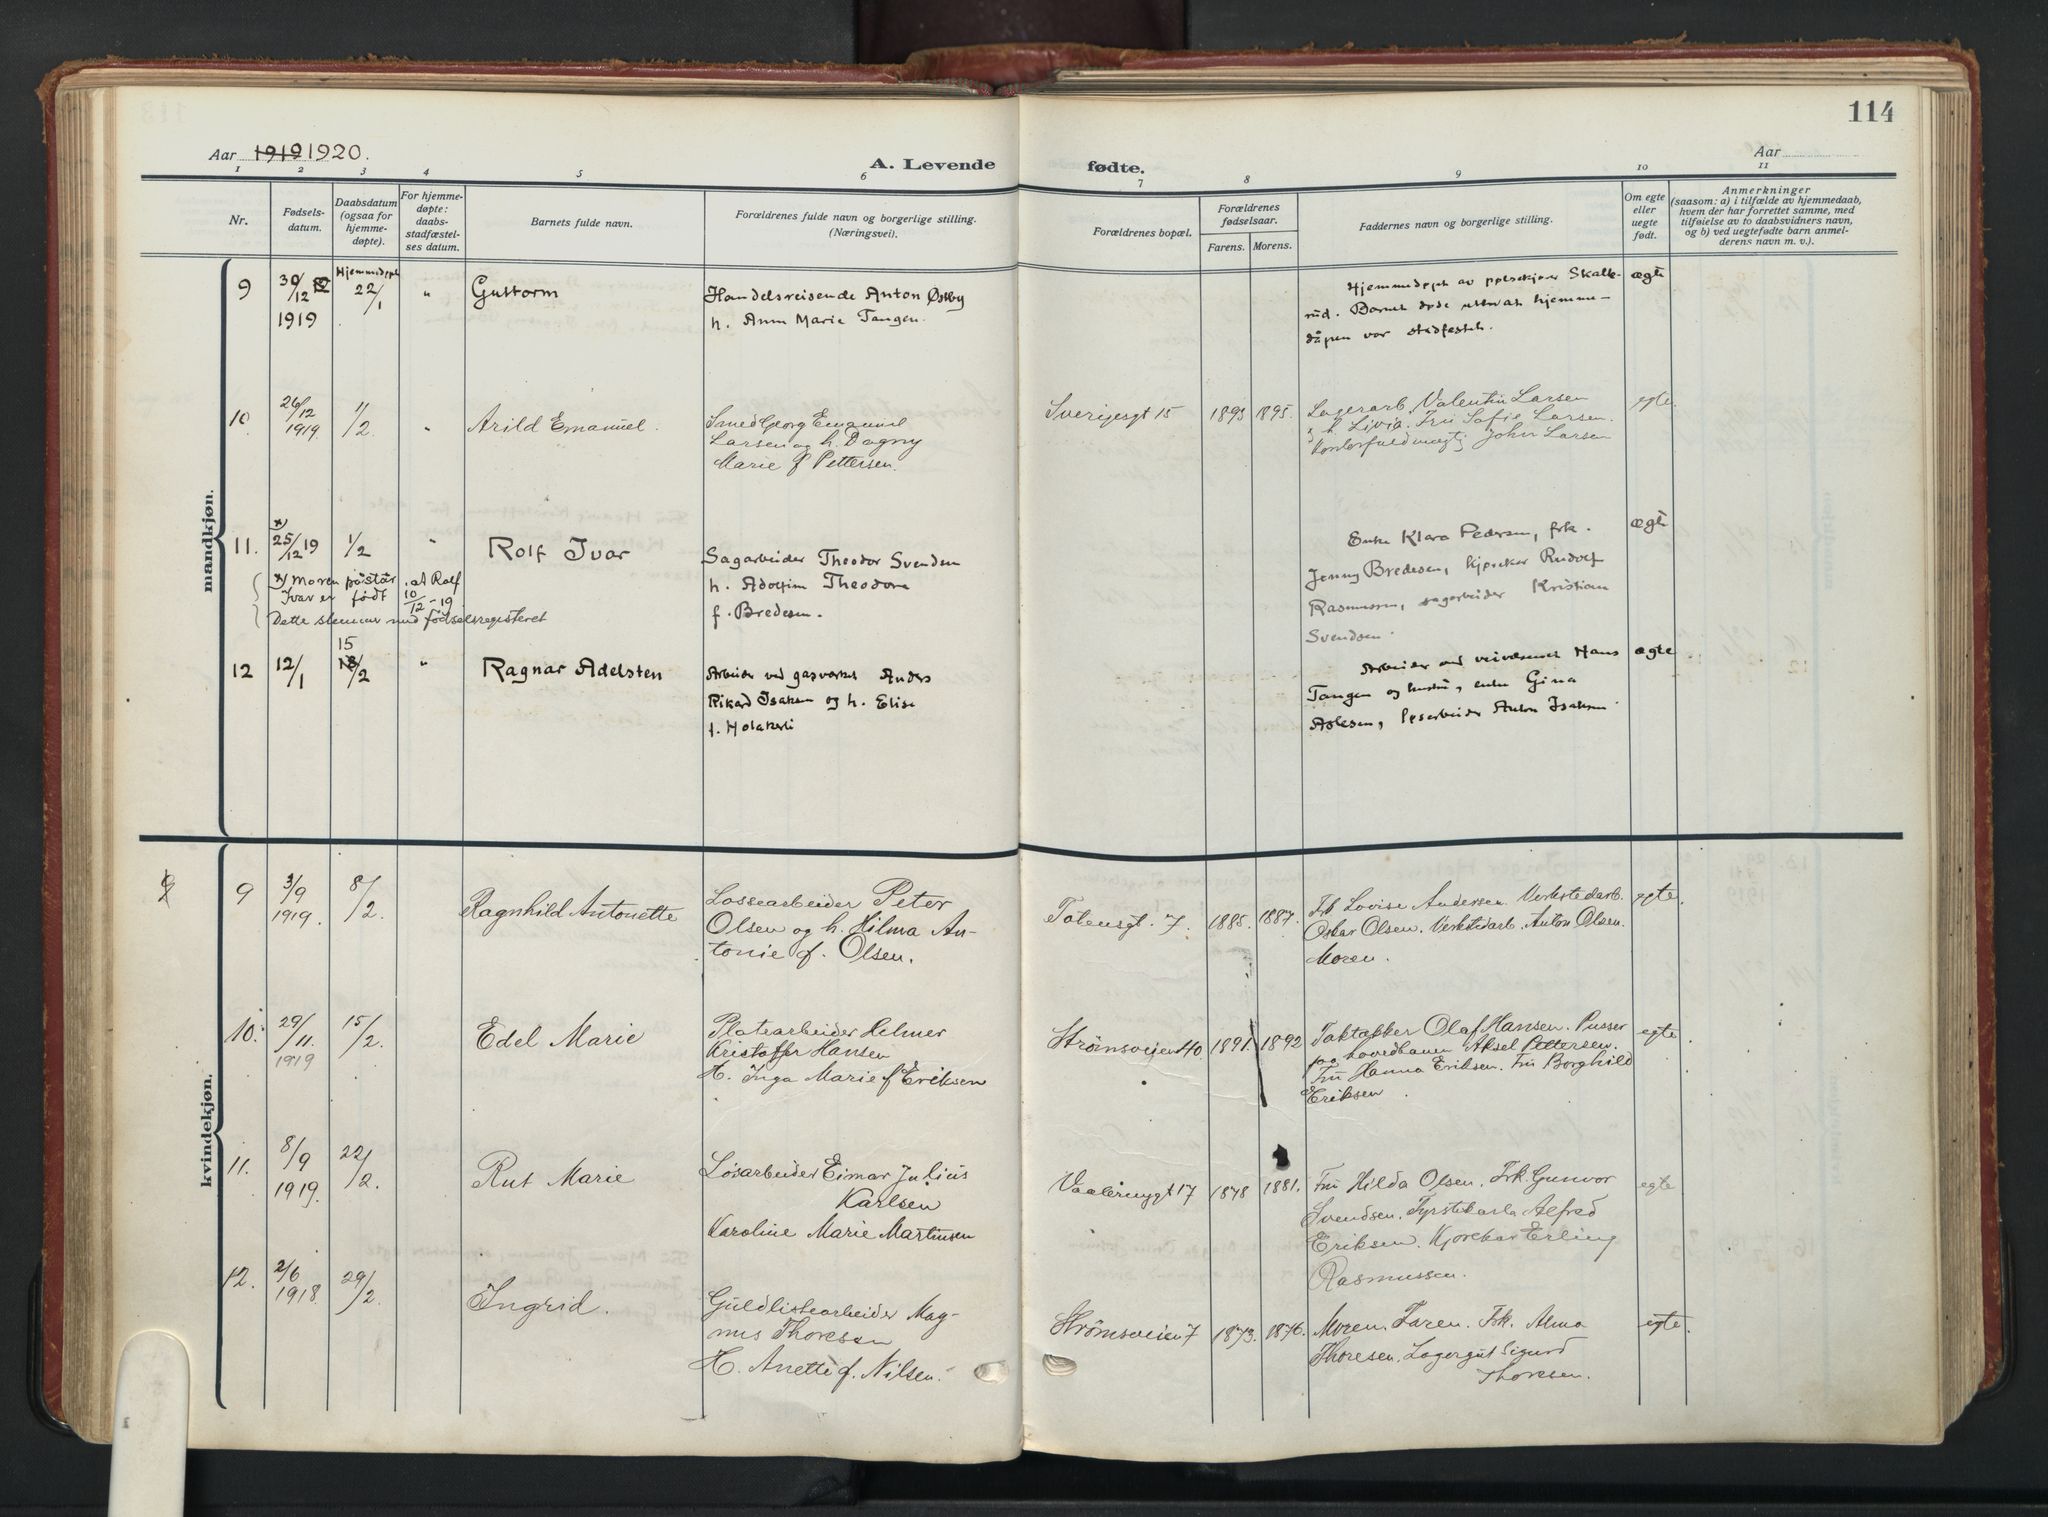 114
Aar 1919 1920.
A. Levende fødte.
Aar
1 2 3 4 5 6 7 8 9 10 11
Nr.
Fødsels-
datum.
Daabsdatum
(ogsaa for
hjemme-
døpte).
For hjemme-
døpte:
daabs-
stadfæstel-
ses datum.
Barnets fulde navn.
Forældrenes fulde navn og borgerlige stilling.
(Næringsvei).
Forældrenes bopæl.
Forældrenes
fødselsaar.
Farens. Morens.
Faddernes navn og borgerlige stilling.
Om egte
eller
uegte
født.
Anmerkninger
(saasom: a) i tilfælde av hjemmedaab,
hvem der har forrettet samme, med
tilføielse av to daabsvidners navn,
og b) ved uegtefødte barn anmel-
derens navn m. v.).
mandkjøn.
9 30/12 1919 Hjemmedøpt 22/1 " Guttorm
Handelsreisende Anton Østby
h. Ann Marie Tangen.
Hjemmedøpt av pølsekjører Skalle-
rud. Barnet døde uten at hjemme-
dåpen var stadfestet.
ægte
10 26/12 1919. 1/2 " Arild Emanuel.
Smed Georg Emanuel
Larsen og h. Dagny
Marie f Pettersen.
Sverigesgt 15 1893 1895.
Lagerarb. Valentin Larsen
h. Livia. Fru Sofie Larsen.
Kontorfuldmægtig John Larsen
egte
11. x) 25/12 19 1/2 " Rolf Ivar
Sagarbeider Theodor Svendsen
h. Adolfine Theodora
f. Bredesen.
Enke Klara Pedersen, frk.
Jenny Bredesen, kjørsker Rudolf
Rasmussen, sagarbeider Kristian
Svendsen.
ægte
x) Moren påstår, at Rolf
Ivar er født 10/12 - 19
Dette stemmer med fødselsregisteret
12 12/1 15/2 " Ragnar Adelsten
Arbeider ved gasverket Anders
Rikard Isaksen og h. Elise
f. Holakerli
Arbeider ved veivæsenet Hans
Tangen og hustru, enke Gina
Aslesen, løsarbeider Anton Isaksen.
ægte
kvindekjøn.
9 3/9 1919. 8/2. Ragnhild Antonette
Lossearbeider Peter
Olsen og h. Hilma An-
tonie f. Olsen.
Totensgt. 7. 1885. 1887.
Frk Lovise Andersen. Verkstedarb.
Oskar Olsen. Verkstedarb. Anton Olsen.
Moren.
egte.
10. 29/11. 1919 15/2. Edel Marie
Platearbeider Helmer
Kristoffer Hansen
H. Inga Marie f Eriksen
Strømsveien 40 1891. 1892
Taktækker Olaf Hansen. Pusser
paa hovedbanen Aksel Pettersen.
Fru Hanna Eriksen. Fru Borghild
Eriksen.
egte
11. 8/9 1919. 22/2. Rut Marie
Løsarbeider Eimar Julius
Karlsen
Karoline Marie Martinsen
Vaalerenggt 17 1878 1881.
Fru Hilda Olsen. Frk. Gunvor
Svendsen. Alfred
Eriksen. Kjørekar Erling
Rasmussen.
egte
12. 2/6 1918. 29/2. Ingrid.
Guldlistearbeider Mag-
nus Thoresen
H. Anette f. Nilsen.
Strømsveien 7 1873. 1876.
Moren. Faren. Frk. Alma
Thoresen. Lagergut Sigurd
Thoresen.
egte.